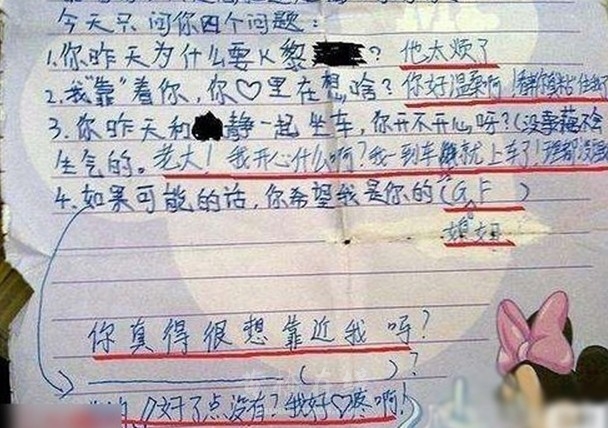 今天只问你四个问题：
1.你昨天为什么要K黎？他太烦了
2.我"靠"着你，你♡里在想啥？你好温柔啊！
3.你昨天和静一起坐车，你开不开心呀？(没事藕不会
生气的。老大！我开心什么啊？我一到车就上车了！
4.如果可能的话，你希望我是你的(GF)
你真得很想靠近我吗？
()？
好了点没有？我好♡疼啊！